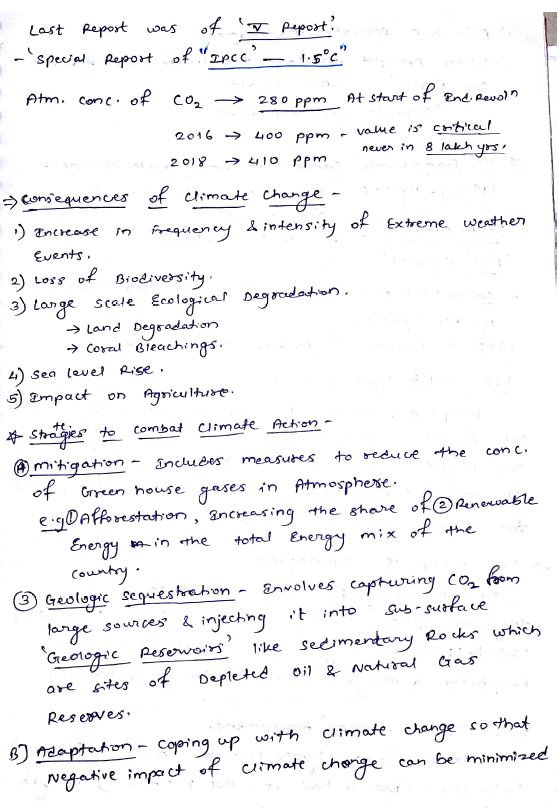 Last Report was of 'V Report'.
- 'Special Report of "IPCC" — 1.5°C"
Atm. conc. of CO₂ → 280 ppm At start of Ind. Revolⁿ
2016 → 400 ppm - value is critical
never in 8 lakh yrs.
2018 → 410 ppm
⇒ Consequences of Climate Change -
1) Increase in frequency & intensity of Extreme weather
Events.
2) Loss of Biodiversity.
3) Large Scale Ecological Degradation.
→ Land Degradation
→ Coral Bleachings.
4) Sea level Rise.
5) Impact on Agriculture.
* Strategies to combat Climate Action -
(A) mitigation - Includes measures to reduce the conc.
of Green house gases in Atmosphere.
e.g. ① Afforestation, Increasing the share of ② Renewable
Energy in the total Energy mix of the
country.
③ Geologic sequestration - Involves capturing CO₂ from
large sources & injecting it into sub-surface
'Geologic Reservoirs' like sedimentary Rocks which
are sites of Depleted oil & Natural Gas
Reserves.
B] Adaptation - coping up with climate change so that
Negative impact of climate change can be minimized